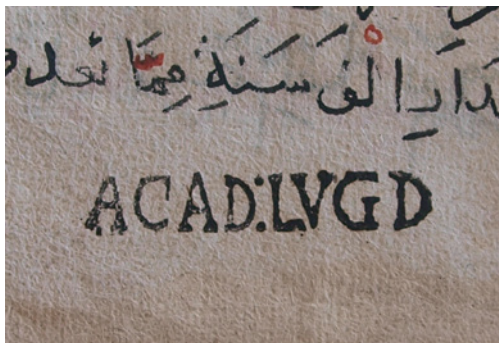 الْفَ سَنَةٍ مِمَّا
ACAD:LVGD